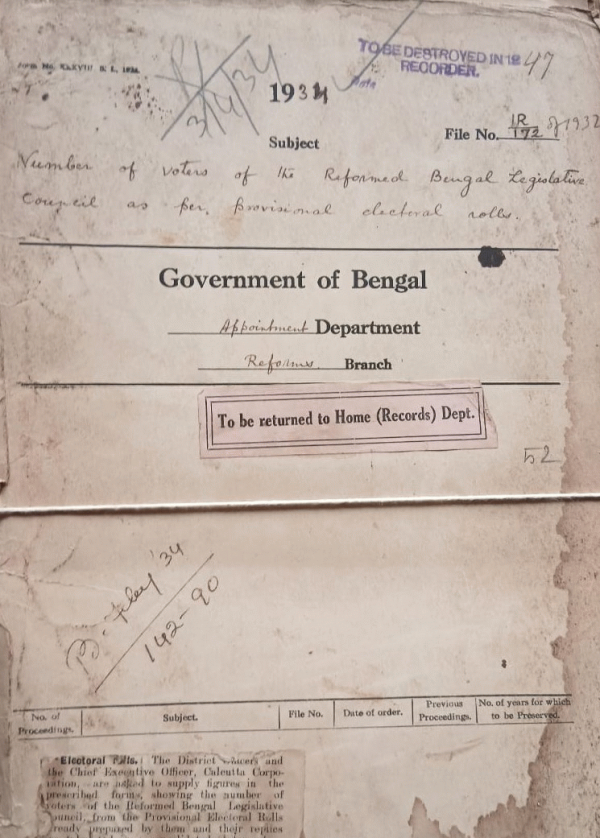 TO BE DESTROYED IN 19 47
RECORDER.
3/4/34
1934
File No. IR/172 of 1932
Subject
Number of voters of the Reformed Bengal Legislative
Council as per Provisional electoral rolls.
Government of Bengal
Appointment Department
Reforms Branch
To be returned to Home (Records) Dept.
52
'34
142-90
No. of Proceedings. Subject. File No. Date of order. Previous Proceedings. No. of years for which to be Preserved.
Electoral Rolls. The District Officers and
the Chief Executive Officer, Calcutta Corpo-
ration, are asked to supply figures in the
prescribed forms, showing the number of
voters of the Reformed Bengal Legislative
Council, from the Provisional Electoral Rolls
ready prepared by them and their replies